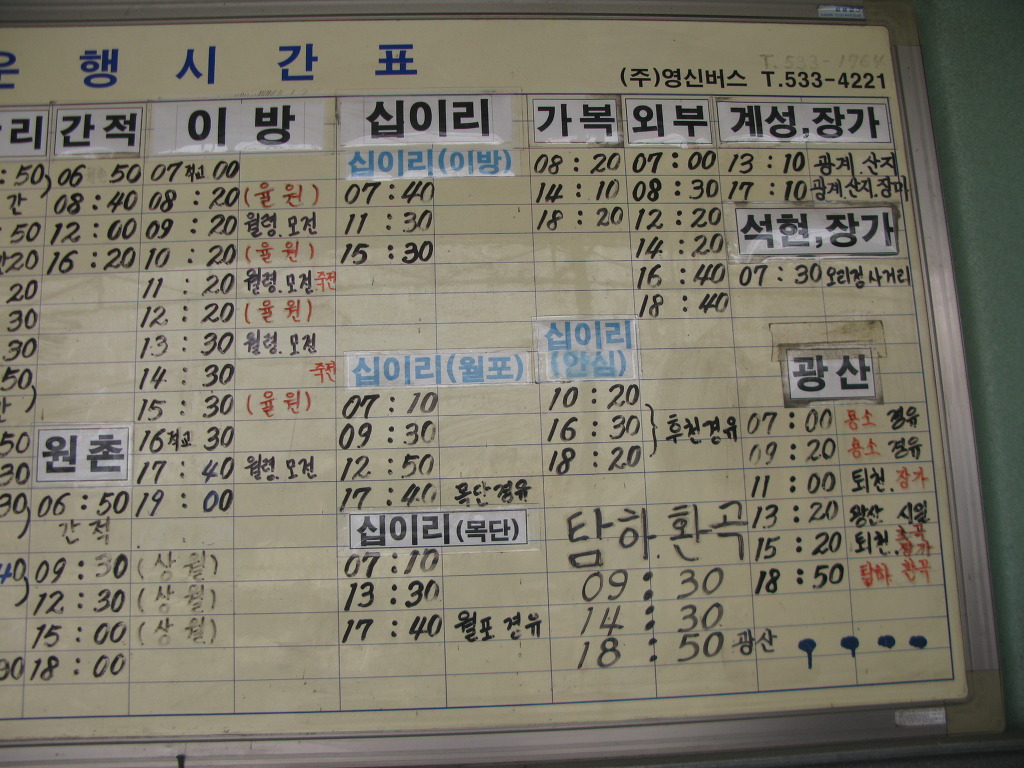 운 행 시 간 표
T. 533-1764
(주)영신버스 T.533-4221
리
:50
간
50
20
20
30
30
50
50
30
30
40
간적
06 50
08:40
12:00
16:20
원촌
06:50
간적
09:30 (상월)
12:30 (상월)
15:00 (상월)
18:00
이 방
07 적교 00
08:20 (율원)
09:20 월령.모전
10:20 (율원)
11:20 월령.모전 주전
12:20 (율원)
13:30 월령.모전
14:30 주전
15:30 (율원)
16 적교 30
17:40 월령.모전
19:00
십이리
십이리(이방)
07:40
11:30
15:30
십이리(월포)
07:10
09:30
12:50
17:40 목단경유
십이리(목단)
07:10
13:30
17:40 월포 경유
가복
08:20
14:10
18:20
십이리
(안심)
10:20
16:30
18:20
후천경유
외부
07:00
08:30
12:20
14:20
16:40
18:40
탐하 환곡
09:30
14:30
18:50 광산
계성,장가
13:10 광계.산지
17:10 광계 산지.장마
석현,장가
07:30 오리정사거리
광산
07:00 용소 경유
09:20 용소 경유
11:00 퇴천.장가
13:20 왕산 시월
15:20 퇴천.
18:50 탐하 환곡